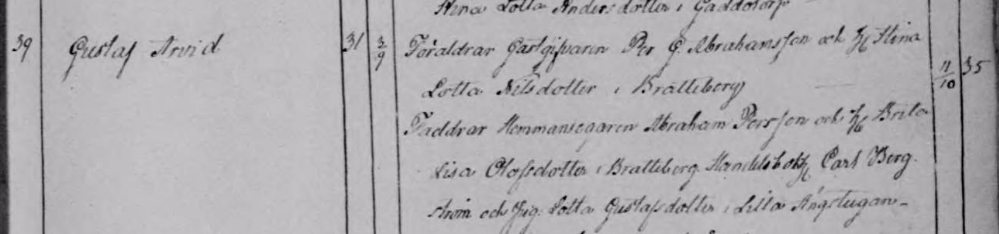 Stina Lotta Andersdotter i Gäddetorp
39 Gustaf Arvid 31 3/9 Föräldrar Gästgifvaren Per G. Abrahamsson och H Stina 11/10 35
Lotta Nilsdotter i Bratteberg
Faddrar Hemmansegaren Abraham Persson och H Brita
Lisa Olofsdotter i Bratteberg Handelsbokh Carl Berg-
ström och Jung. Lotta Gustafsdotter i Lilla